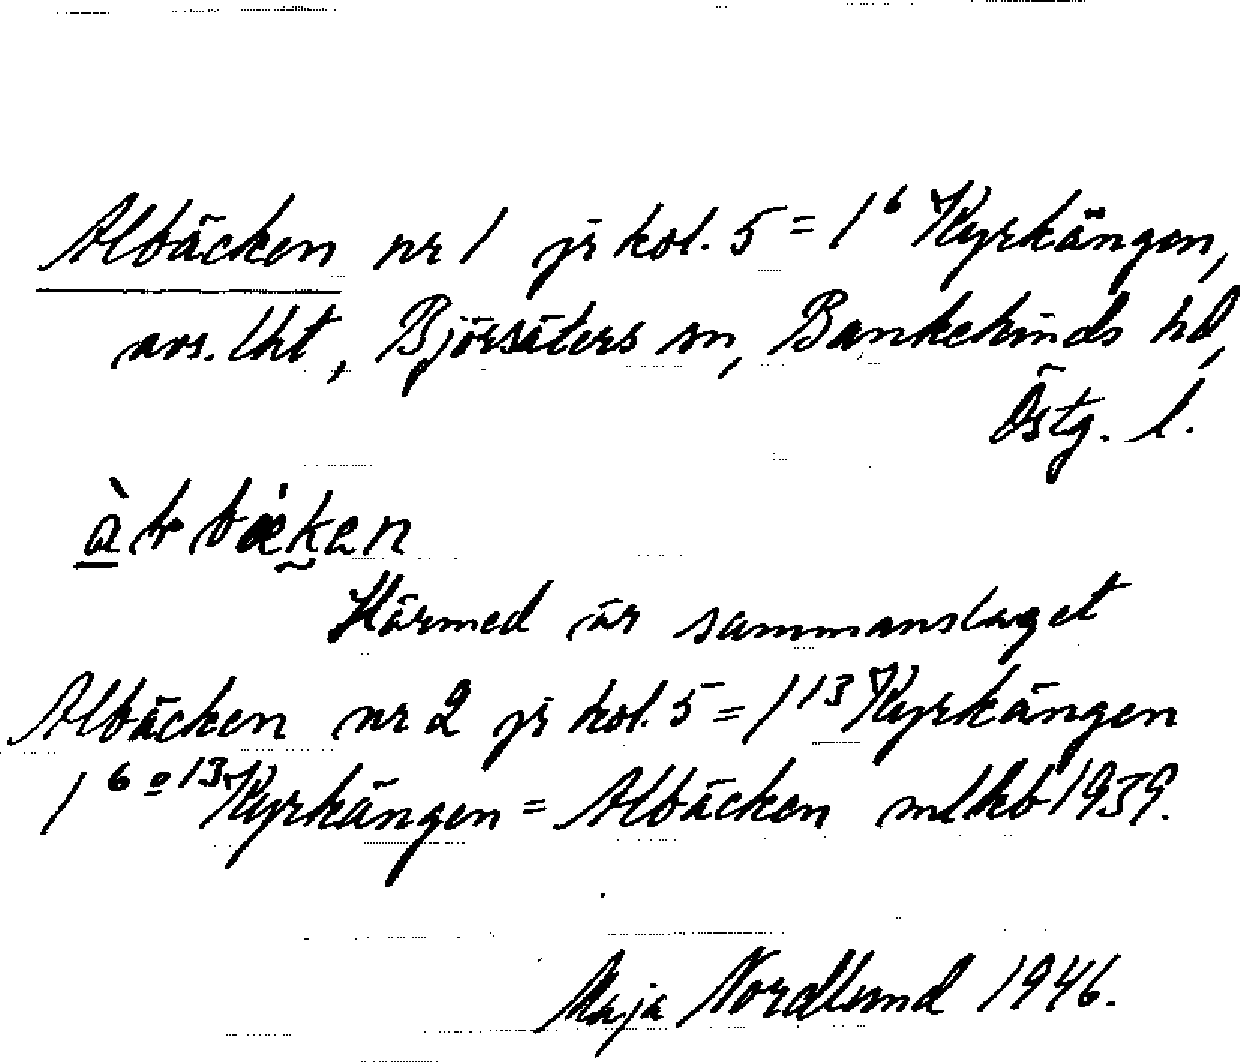 Albäcken nr 1 jr kol. 5 = 1⁶ Kyrkängen,
avs. lht, Björsäters sn, Bankekinds hd,
Östg. l.
Härmed är sammanslaget
Albäcken nr 2 jr kol. 5 = 1¹³ Kyrkängen
1⁶ ᵒ ¹³ Kyrkängen = Albäcken mlkb 1939.
Maja Nordlund 1946.